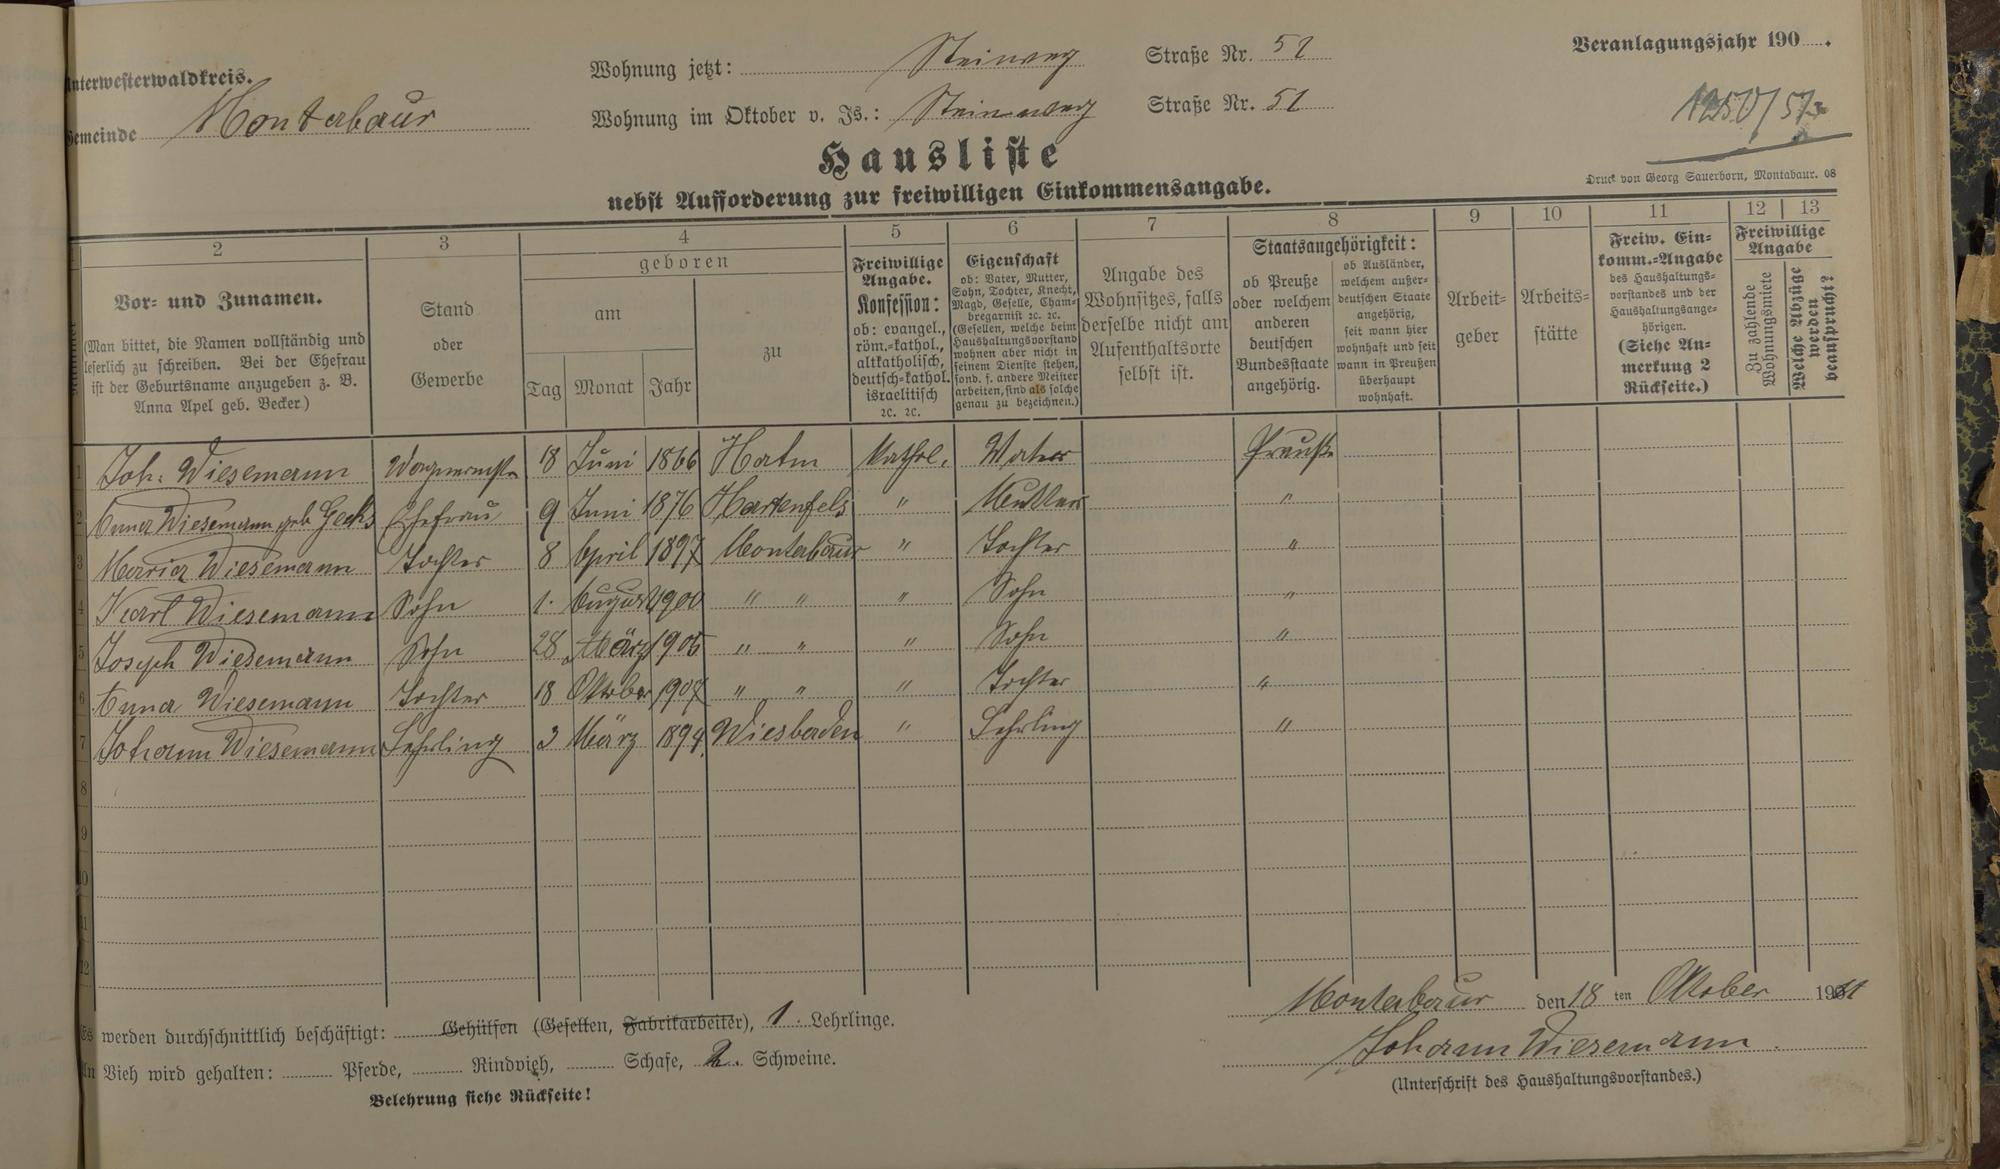 Unterwesterwaldkreis.
Gemeinde Montabaur
Wohnung jetzt: Steinweg Straße Nr. 51
Wohnung im Oktober v. Js.: Steinweg Straße Nr. 51
Veranlagungsjahr 190 .
1250/51
Hausliste
nebst Aufforderung zur freiwilligen Einkommensangabe.
Druck von Georg Sauerborn, Montabaur. 08
2 3 4 5 6 7 8 9 10 11 12 13
Vor- und Zunamen.
(Man bittet, die Namen vollständig und
leserlich zu schreiben. Bei der Ehefrau
ist der Geburtsname anzugeben z. B.
Anna Apel geb. Becker.)
Stand
oder
Gewerbe
geboren
am
Tag Monat Jahr
zu
Freiwillige
Angabe.
Konfession:
ob: evangel.,
röm.-kathol.,
altkatholisch,
deutsch-kathol.
israelitisch
ꝛc. ꝛc.
Eigenschaft
ob: Vater, Mutter,
Sohn, Tochter, Knecht,
Magd, Geselle, Cham-
bregarnist ꝛc. ꝛc.
(Gesellen, welche beim
Haushaltungsvorstand
wohnen aber nicht in
seinem Dienste stehen,
sond. f. andere Meister
arbeiten, sind als solche
genau zu bezeichnen.)
Angabe des
Wohnsitzes, falls
derselbe nicht am
Aufenthaltsorte
selbst ist.
Staatsangehörigkeit:
ob Preuße
oder welchem
anderen
deutschen
Bundesstaate
angehörig.
ob Ausländer,
welchem außer-
deutschen Staate
angehörig,
seit wann hier
wohnhaft und seit
wann in Preußen
überhaupt
wohnhaft.
Arbeit-
geber
Arbeits-
stätte
Freiw. Ein-
komm.-Angabe
des Haushaltungs-
vorstandes und der
Haushaltungsange-
hörigen.
(Siehe An-
merkung 2
Rückseite.)
Freiwillige
Angabe
Zu zahlende
Wohnungsmiete
Welche Abzüge
werden
beansprucht?
1 Joh. Wiesemann 18 Juni 1866 Kathol. Vater Preuße
2 Anna Wiesemann geb. Ehefrau 9 Juni 1876 Hartenfels " Mutter "
3 Maria Wiesemann Tochter 8 April 1897 Montabaur " Tochter "
4 Karl Wiesemann Sohn 1. August 1900 " " " Sohn "
5 Joseph Wiesemann Sohn 28 März 1905 " " " Sohn "
6 Anna Wiesemann Tochter 18 Oktober 1907 " " " Tochter "
7 Johann Wiesemann Lehrling 3 März 1894 Wiesbaden " Lehrling "
8
9
10
11
12
Es werden durchschnittlich beschäftigt: Gehülfen (Gesellen, Fabrikarbeiter), 1. Lehrlinge.
An Vieh wird gehalten: Pferde, Rindvieh, Schafe, 2. Schweine.
Belehrung siehe Rückseite!
Montabaur den 18 ten Oktober 1911
Johann Wiesemann.
(Unterschrift des Haushaltungsvorstandes.)